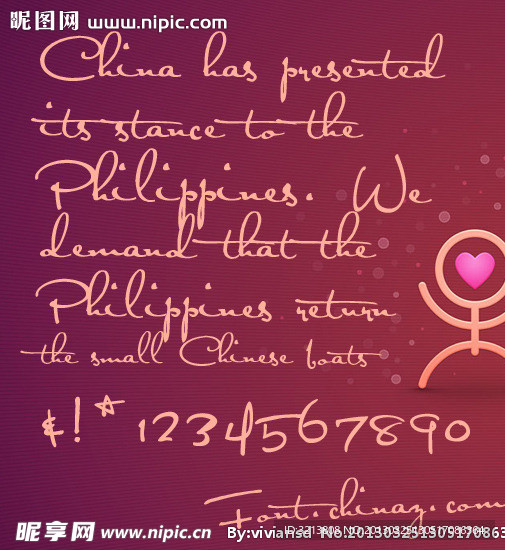 昵图网 www.nipic.com
China has presented
its stance to the
Philippines. We
demand that the
Philippines return
the small Chinese boats
&!* 1234567890
Font.chinaz.com
昵享网 www.nipic.cn
By:viviansd No.20130325130517086